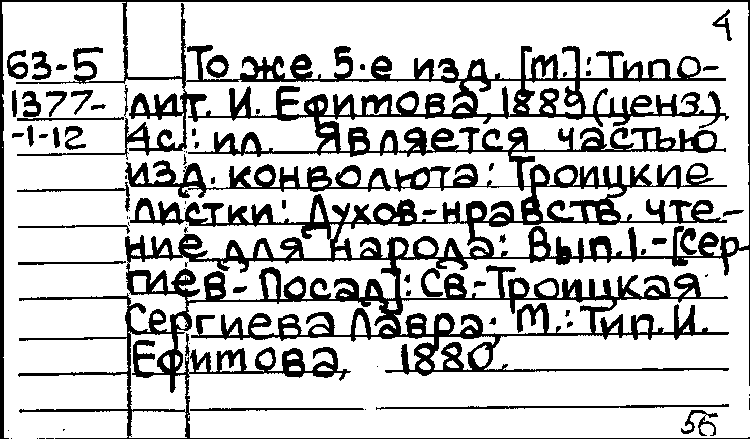 4
63-5 То же. 5-е изд. [М.]: Типо-
1377- лит. И. Ефитова, 1889 (ценз.).
-1-12 4с.: ил. Является частью
изд. конволюта: Троицкие
листки: Духов-нравств. чте-
ние для народа: Вып.1.-[Сер-
гиев-Посад]: Св.-Троицкая
Сергиева Лавра; М.: Тип. И.
Ефитова, 1880.
56